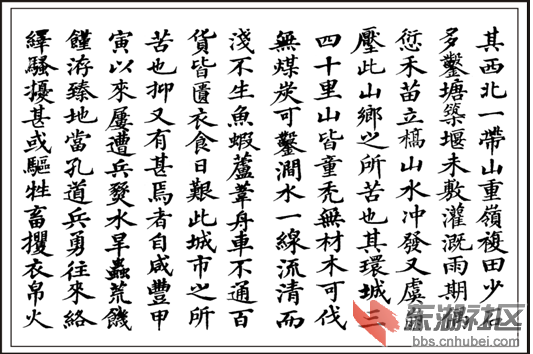 其西北一帶山重嶺複田少石
多鑿塘築堰未敷灌溉雨期偶
愆禾苗立槁山水冲發又虞崩
壓此山鄉之所苦也其環城三
四十里山皆童禿無材木可伐
無煤炭可鑿澗水一線流清而
淺不生魚蝦蘆葦舟車不通百
貨皆匱衣食日艱此城市之所
苦也抑又有甚焉者自咸豐甲
寅以來屢遭兵燹水旱蟲荒饑
饉洊臻地當孔道兵勇往來絡
繹騷擾甚或驅牲畜攫衣帛火
东湖社区
bbs.cnhubei.com